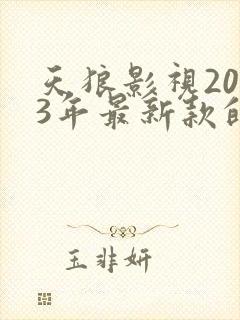 天狼影視20
3年最新款的
玉非妍